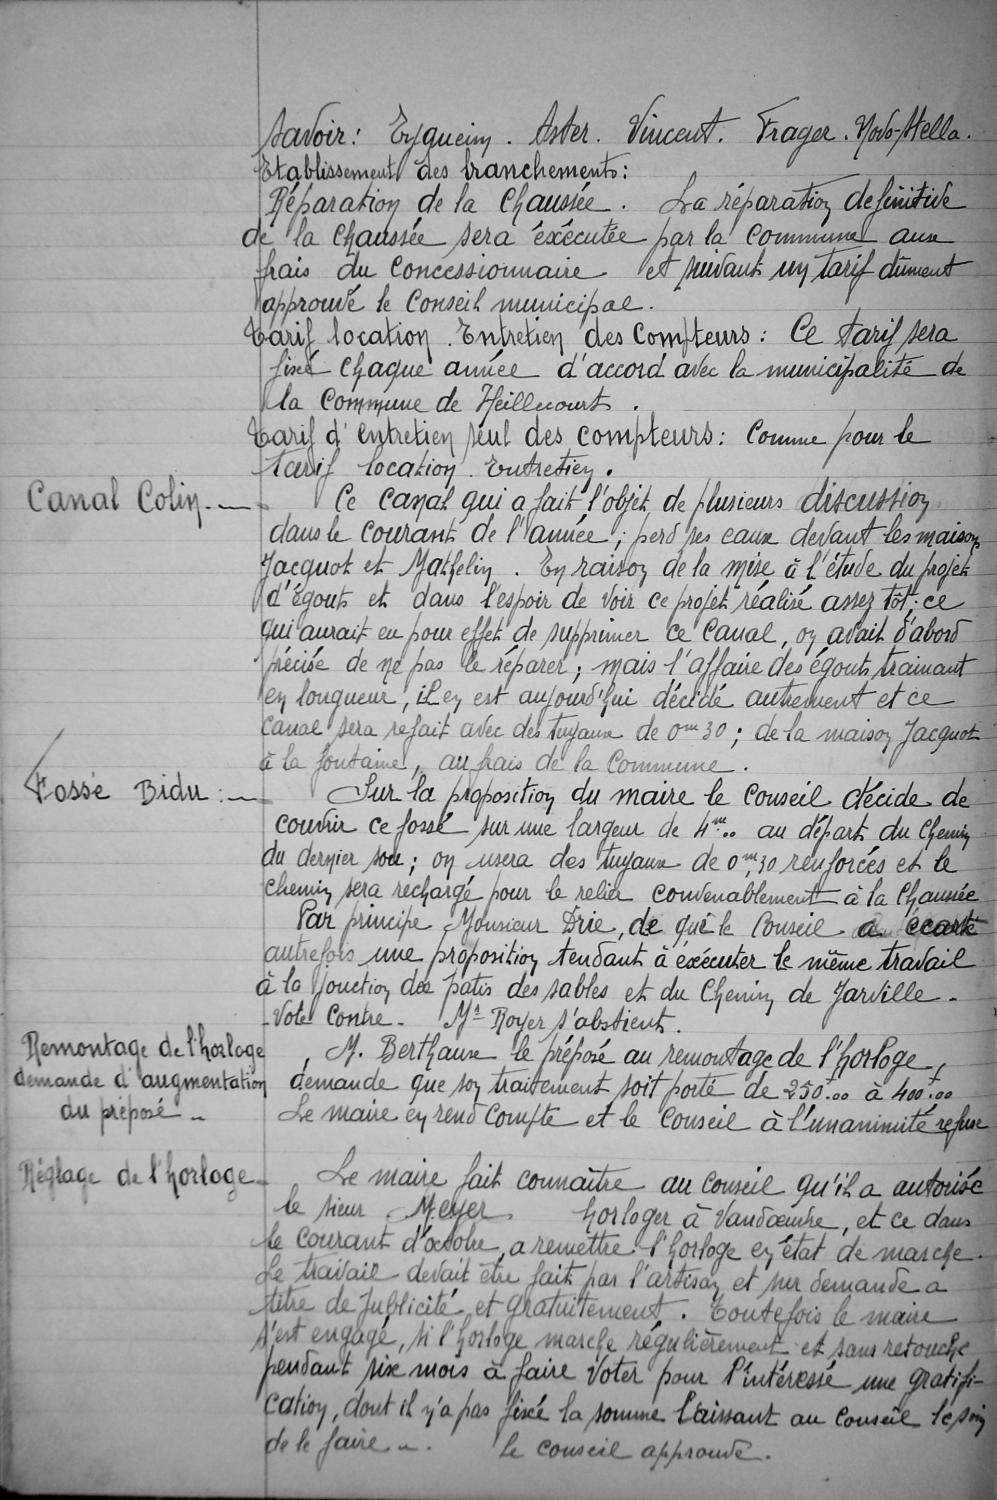 savoir : Eyquem . Aster . Vincent . Frager . Novo-Stella .
Etablissement des branchements :
Réparation de la Chaussée . La réparation definitive
de la Chaussée sera éxécutée par la Commune aux
frais du concessionnaire et suivant un tarif dûment
approuvé le Conseil municipal .
Tarif location . Entretien des Compteurs : Ce tarif sera
fixé chaque année d'accord avec la municipalité de
la Commune de Heillecourt .
Tarif d'entretien seul des compteurs : Comme pour le
tarif location . Entretien .
Canal Colin . — Ce canal qui a fait l'objet de plusieurs discussion
dans le courant de l'année ; perd ses eaux devant les maisons
Jacquot et Mathelin . En raison de la mise à l'étude du projet
d'Égouts et dans l'espoir de voir ce projet réalisé assez tôt ; ce
qui aurait eu pour effet de supprimer ce canal, on avait d'abord
précisé de ne pas le réparer ; mais l'affaire des égouts trainant
en longueur, il en est aujourd'hui décidé autrement et ce
canal sera refait avec des tuyaux de 0m30 ; de la maison Jacquot
à la fontaine, au frais de la Commune .
Fossé Bidu : — Sur la proposition du maire le Conseil décide de
couvrir ce fossé sur une largeur de 4m.. au départ du Chemin
du dernier sou ; on usera des tuyaux de 0m,30 renforcés et le
chemin sera rechargé pour le relier convenablement à la Chaussée
Par principe Monsieur Drie, de que le Conseil a écarté
autrefois une proposition tendant à éxécuter le même travail
à la jonction des patis des sables et du Chemin de Jarville -
- Vote Contre - Mr Royer s'abstient .
Remontage de l'horloge
demande d'augmentation
du préposé -
M. Berthaux le préposé au remontage de l'horloge,
demande que son traitement soit porté de 250f.oo à 400f.oo
Le maire en rend compte et le Conseil à l'unanimité refuse
Réglage de l'horloge - Le maire fait connaître au Conseil qu'il a autorisé
le sieur Meyer horloger à Vandœuvre, et ce dans
le courant d'octobre, a remettre l'horloge en état de marche .
Le travail devait être fait par l'artisan et sur demande a
titre de publicité et gratuitement . Toutefois le maire
s'est engagé, si l'horloge marche régulièrement et sans retouche
pendant six mois à faire voter pour l'intéressé une gratifi-
cation, dont il n'a pas fixé la somme laissant au Conseil le soin
de le faire - . Le conseil approuve .